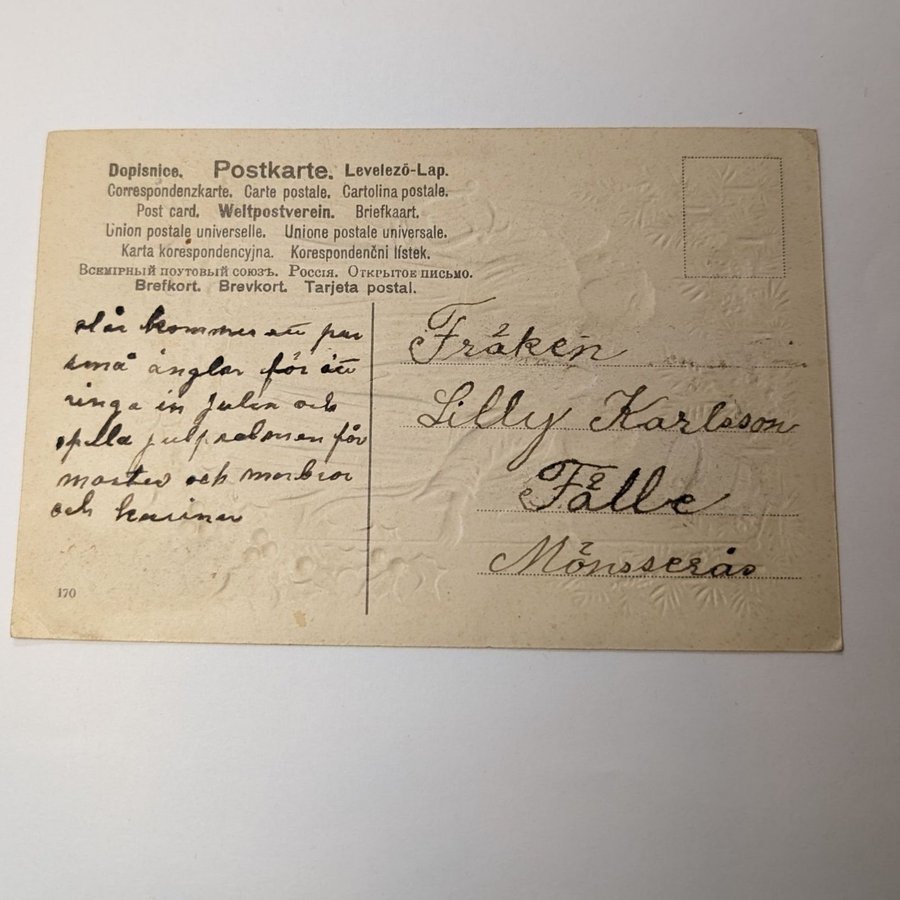 Dopisnice. Postkarte. Levelezö-Lap.
Correspondenzkarte. Carte postale. Cartolina postale.
Post card. Weltpostverein. Briefkaart.
Union postale universelle. Unione postale universale.
Karta korespondencyjna. Korespondenčni lístek.
Всемірный поутовый союзъ. Россія. Открытое письмо.
Brefkort. Brevkort. Tarjeta postal.
kommer ett par
små änglar för att
ringa in julen och
spella julpsalmen för
moster och morbror
och
170
Fröken
Lilly Karlsson
Fålle
Mönsserås